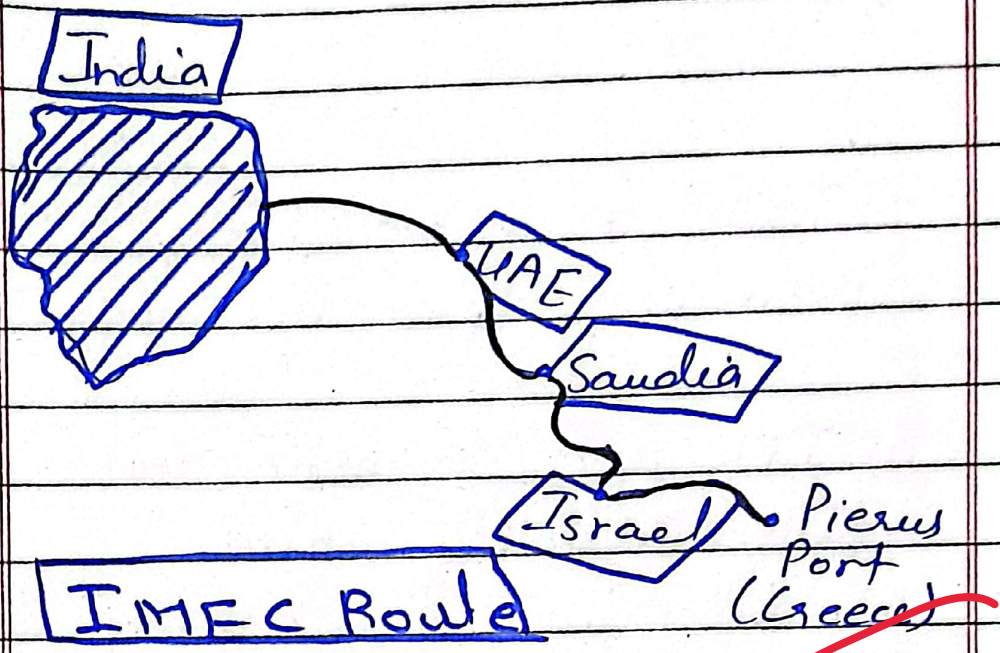 India
UAE
Saudia
Israel
Pierus
Port
(Greece)
IMEC Route